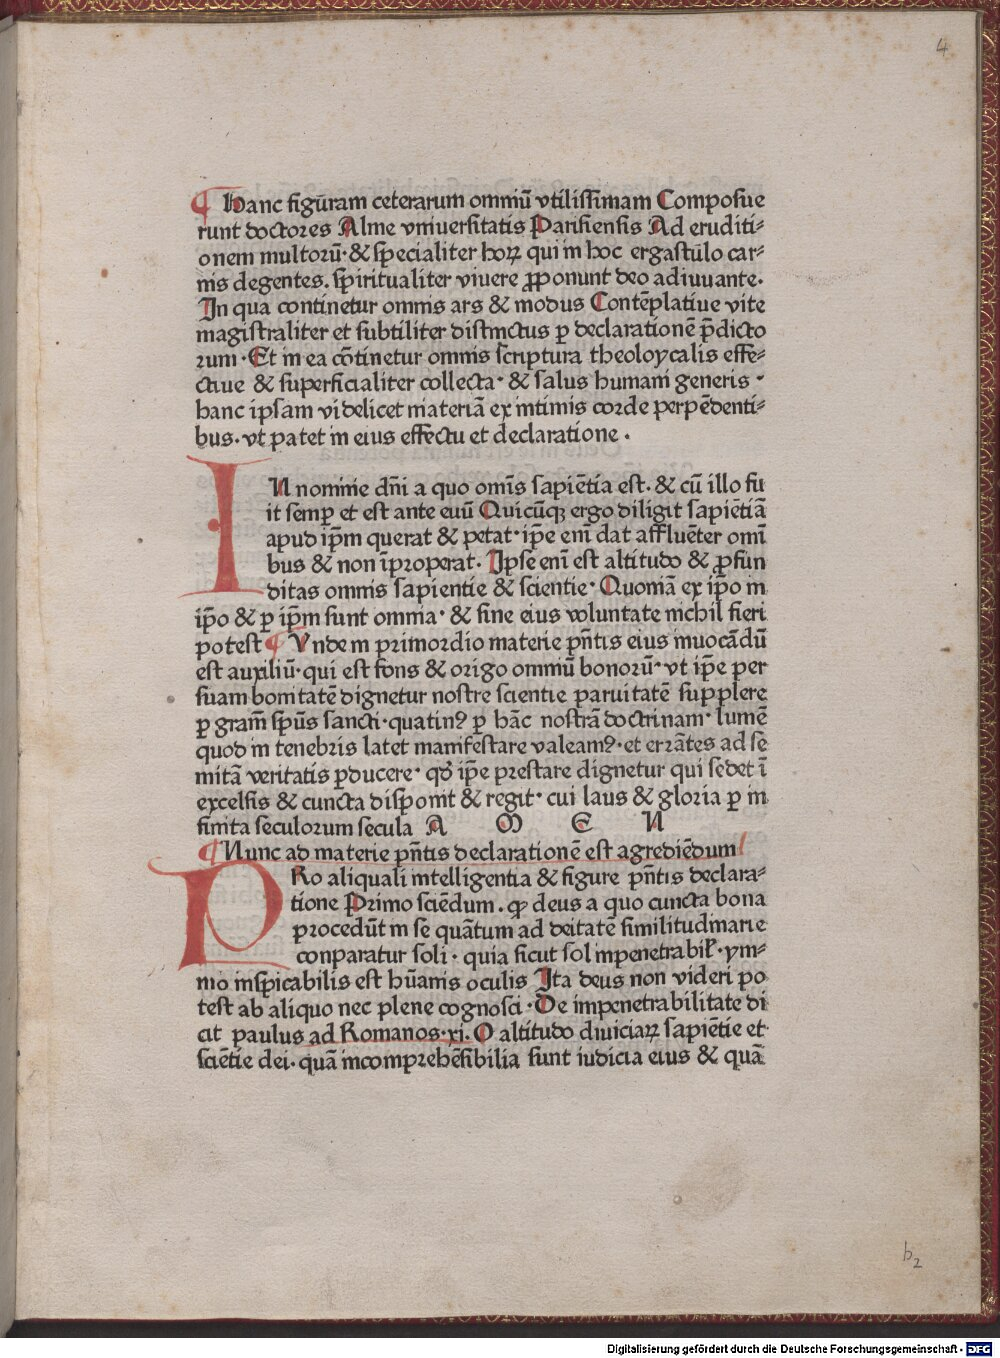 4
¶ Hanc figuram ceterarum omniū vtilissimam Composue
runt doctores Alme vniuersitatis Parisiensis Ad eruditi⸗
onem multorū· & specialiter hoꝝ qui in hoc ergastulo car⸗
nis degentes. spiritualiter viuere ꝓponunt deo adiuuante.
In qua continetur omnis ars & modus Contēplatiue vite
magistraliter et subtiliter distinctus ꝑ declarationē p̄dicto
rum· Et in ea cōtinetur omnis scriptura theoloycalis effe⸗
ctiue & superficialiter collecta· & salus humani generis ·
hanc ipsam videlicet materiā ex intimis corde perpēdenti⸗
bus. vt patet in eius effectu et declaratione .
IN nomine dn̄i a quo omīs sapiētia est. & cū illo fu
it semꝑ et est ante euū Quicūqꝫ ergo diligit sapiētiā
apud ip̄m querat & petat· ip̄e enī dat affluēter omī
bus & non īproperat. Ipse enī est altitudo & ꝓfun
ditas omnis sapientie & scientie· Quoniā ex ip̄o in
ip̄o & ꝑ ip̄m sunt omnia· & sine eius voluntate nichil fieri
potest ¶ Vnde in primordio materie pn̄tis eius inuocādū
est auxiliū· qui est fons & origo omniū bonorū· vt ip̄e per
suam bonitatē dignetur nostre scientie paruitatē supplere
ꝑ gram̄ spūs sancti· quatinꝰ ꝑ hāc nostrā doctrinam· lumē
quod in tenebris latet manifestare valeamꝰ· et errātes ad se
mitā veritatis ꝑducere· qđ ip̄e prestare dignetur qui sedet ī
excelsis & cuncta disponit & regit· cui laus & gloria ꝑ in
finita seculorum secula A M E N
¶ Nunc ad materie pn̄tis declarationē est agrediēdum
PRo aliquali intelligentia & figure pn̄tis declara⸗
tione Primo sciēdum. ꝙ deus a quo cuncta bona
procedūt in se quātum ad deitatē similitudinarie
conparatur soli· quia sicut sol inpenetrabil̄· ym⸗
mo inspicabilis est hūanis oculis Ita deus non videri po
test ab aliquo nec plene cognosci· De impenetrabilitate di
cit paulus ad Romanos·xi. O altitudo diuiciaꝝ sapiētie et
sciētie dei. quā incomprehēsibilia sunt iudicia eius & quā
b2
Digitalisierung gefördert durch die Deutsche Forschungsgemeinschaft - DFG